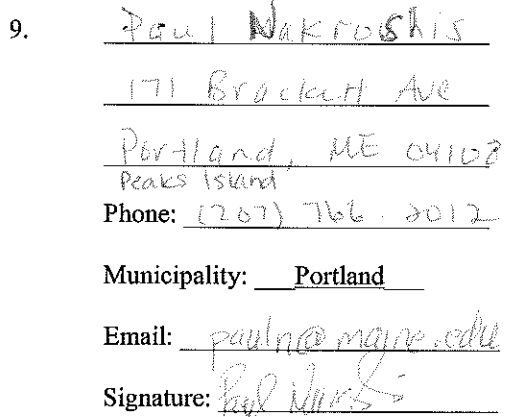 9. Paul Nakroshis
171 Brackett Ave
Portland, ME 04108
Peaks Island
Phone: (207) 766.2012
Municipality: Portland
Email: pauln@maine.edu
Signature: Paul